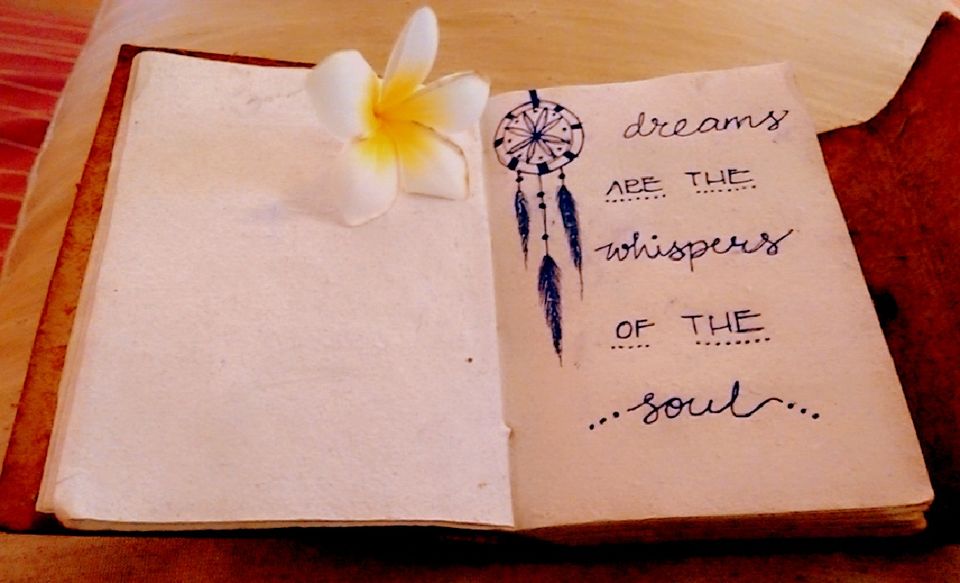 dreams
ARE THE
whispers
OF THE
soul